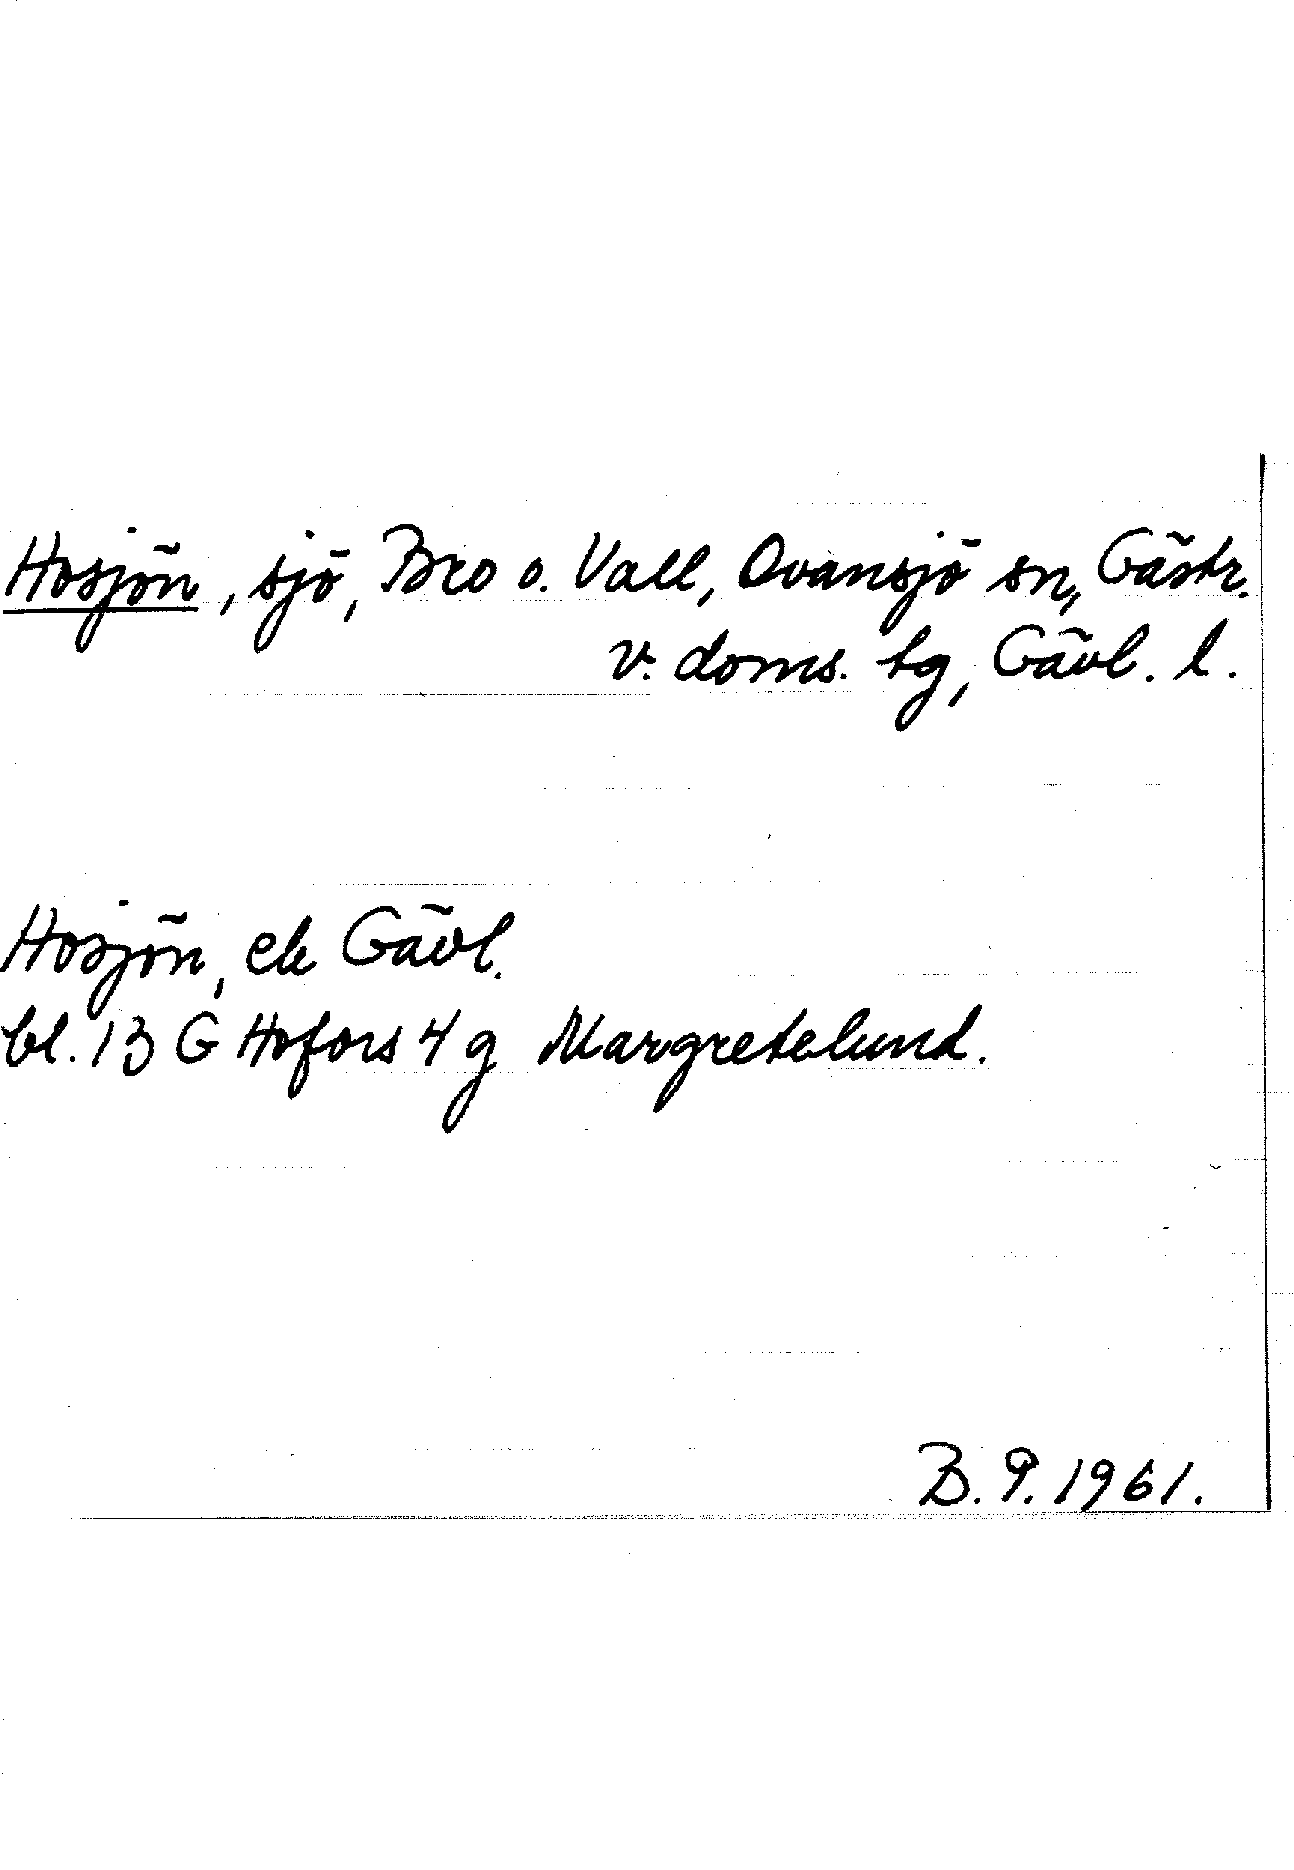 Hosjön, sjö, Bro o. Vall, Ovansjö sn, Gästr.
v. doms. tg, Gävl. l.
Hosjön, ek Gävl.
bl. 13 G Hofors 4 g Margretelund.
B. 9. 1961.